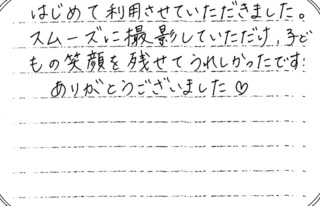 はじめて利用させていただきました。
スムーズに撮影していただけ、子ど
もの笑顔を残せてうれしかったです!
ありがとうございました♡